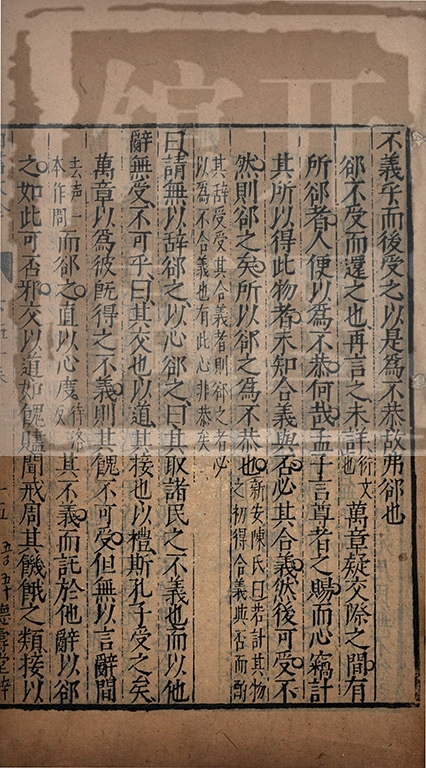 不義乎而後受之以是為不恭故弗郤也
郤不受而還之也再言之未詳衍文也萬章疑交際之間有
所郤者人便以為不恭何哉孟子言尊者之賜而心竊計
其所以得此物者未知合義與否必其合義然後可受不
然則郤之矣所以郤之為不恭也新安陳氏曰若計其物之初得合義與否而酌
其辭受受其合義者則郤之者必以為不合義也有此心非恭矣
曰請無以辭郤之以心郤之曰其取諸民之不義也而以他
辭無受不可乎曰其交也以道其接也以禮斯孔子受之矣
萬章以為彼旣得之不義則其餽不可受但無以言辭間
去聲一本作問而郤之直以心度待洛反其不義而託於他辭以郤
之如此可否邪交以道如餽贐聞戒周其飢餓之類接以